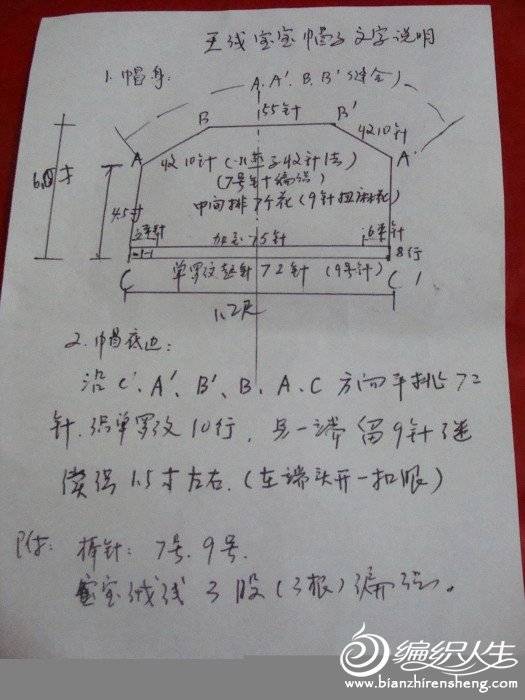 毛线宝宝帽子文字说明
1. 帽身:
A, A', B, B' (缝合)
155针
B B'
A 收10针 收10针 A'
(7号针编织)
中间排7个花 (9针扭麻花)
4.5寸
加至75针
8行
单罗纹起针72针 (9号针)
C C'
1.2尺
2. 帽底边:
沿C'、A'、B'、B、A、C方向平挑72
针.织单罗纹10行,另一端留9针继
续织1.5寸左右.(在端头开一扣眼)
附: 棒针: 7号、9号.
宝宝绒线3股(3根)编织。
编织人生
www.bianzhirensheng.com